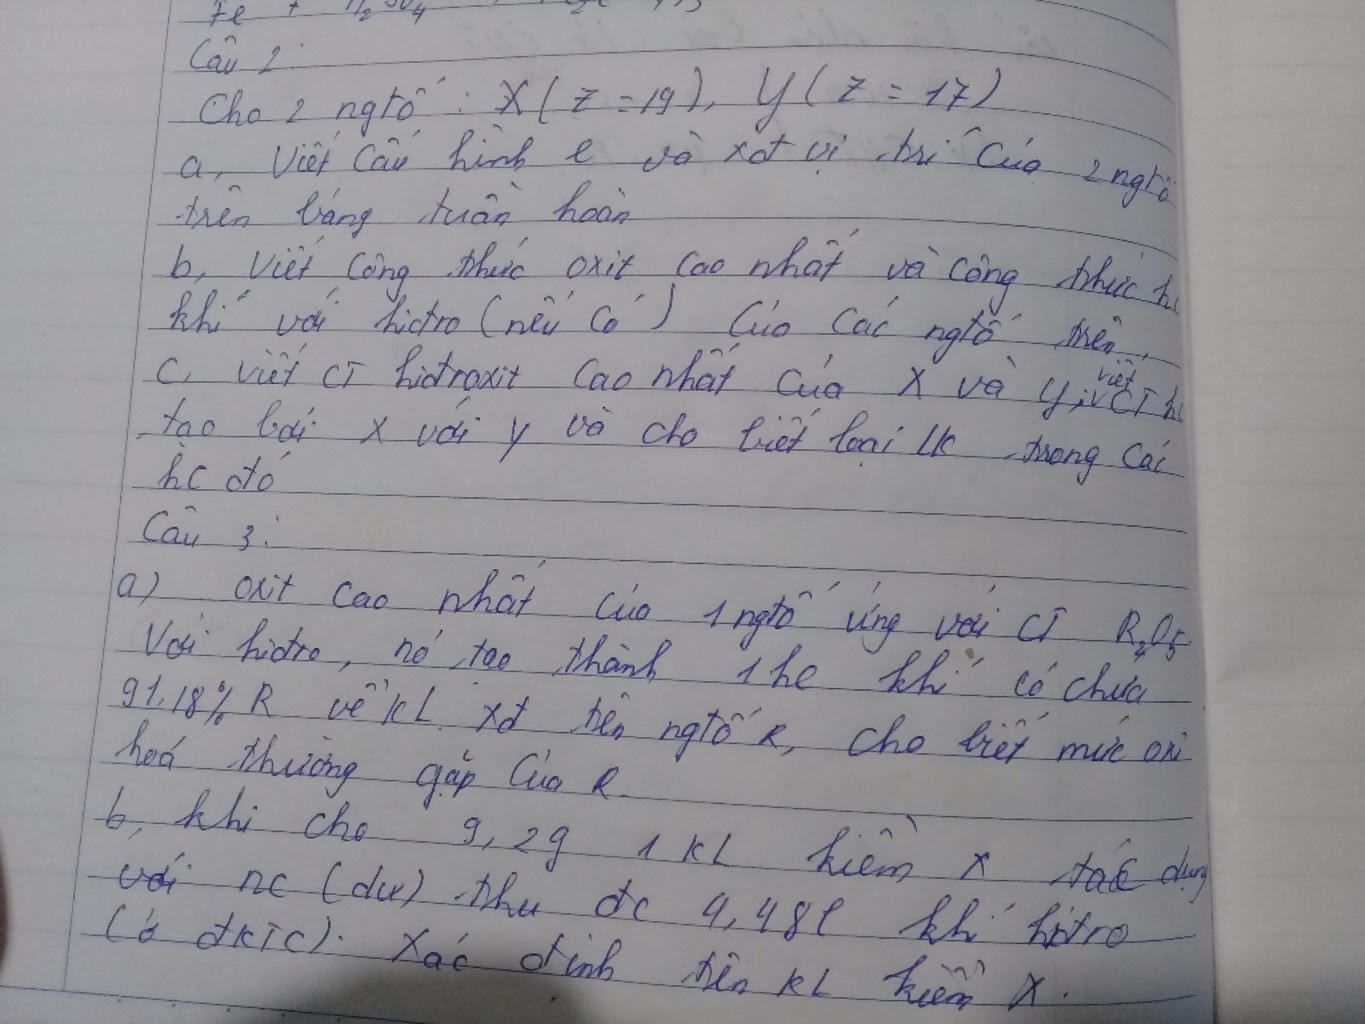 Fe + H₂SO₄
Câu 2:
Cho 2 ngtố : X (Z = 19), Y (Z = 17)
a, Viết cấu hình e và xđ vị trí của 2 ngtố
trên bảng tuần hoàn
b, Viết công thức oxit cao nhất và công thức h
khí với hiđro (nếu có) của các ngtố trên.
c, viết CT hiđroxit cao nhất của X và Y, viết CT h
tạo bởi X với Y và cho biết loại lk trong các
hc đó
Câu 3:
a) oxit cao nhất của 1 ngtố ứng với CT R₂O₅.
Với hiđro, nó tạo thành 1 hc khí có chứa
91,18% R về KL. xđ tên ngtố R, cho biết mức oxi
hoá thường gặp của R.
b, khi cho 9,2g 1 KL kiềm X tác dụng
với nc (dư) thu đc 4,48l khí hiđro
(ở đktc). Xác định tên KL kiềm X.